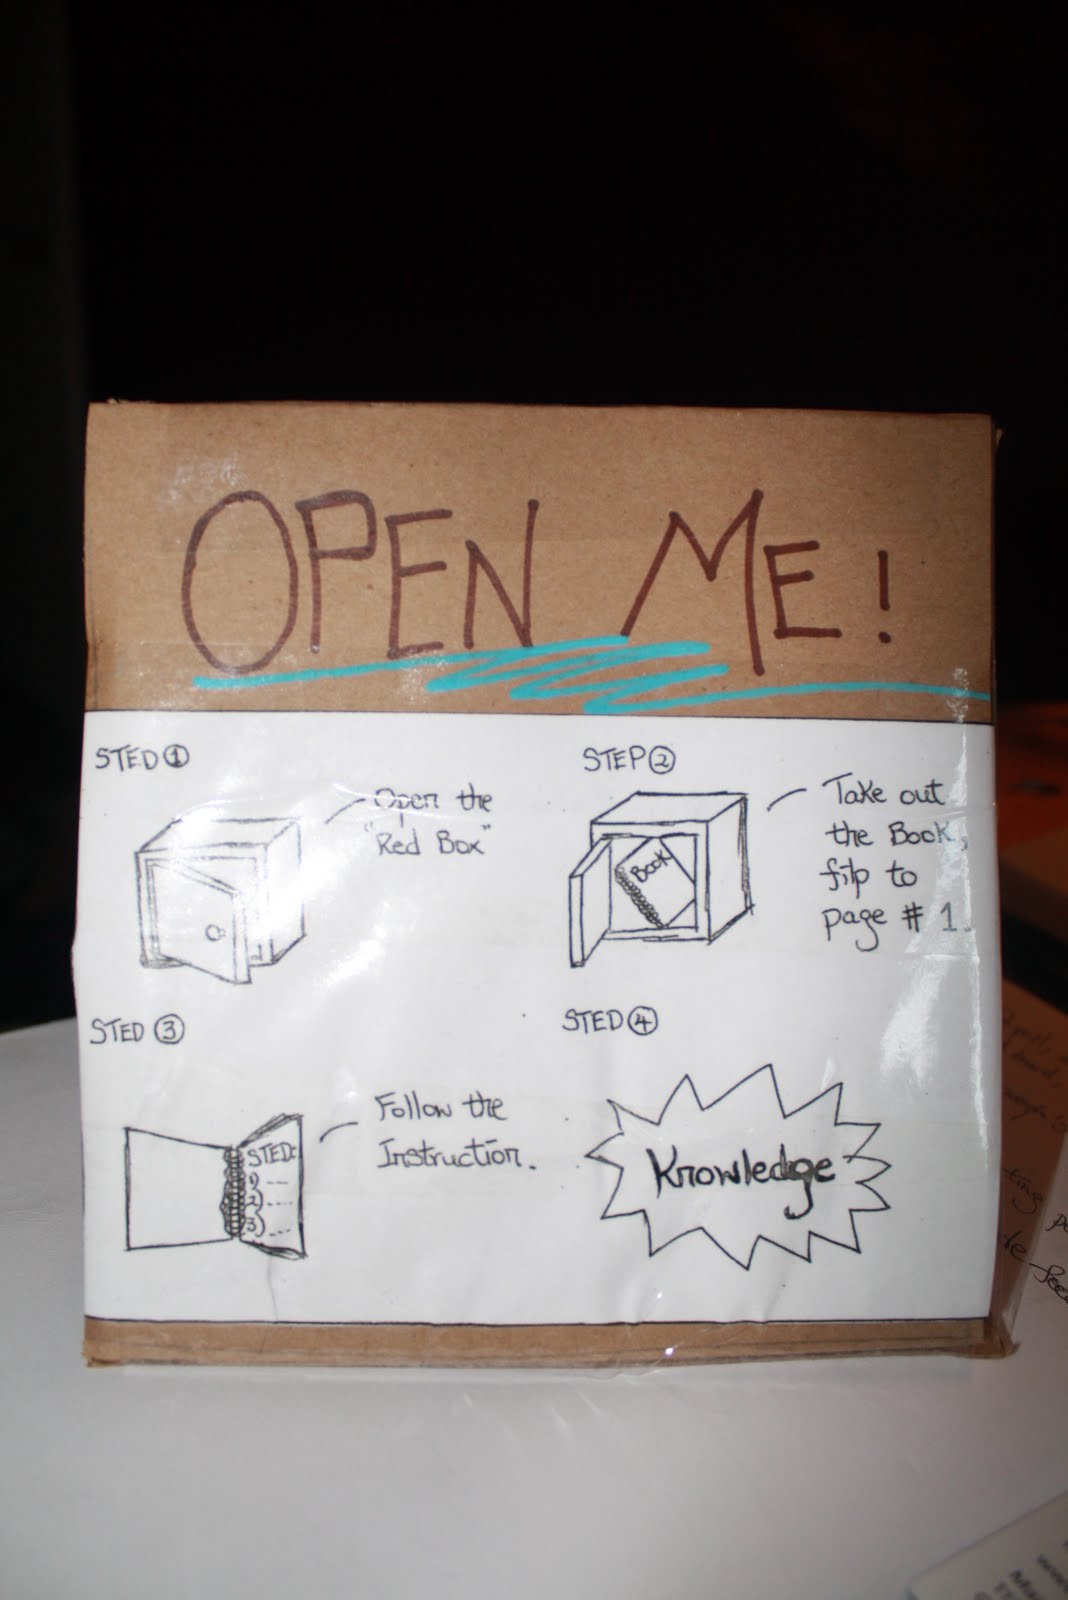 OPEN ME!
STED ①
Open the
"Red Box"
STEP ②
Take out
the Book,
filp to
page # 1.
BOOK
STED ③
Follow the
Instruction.
STED:
1) ---
2) ---
3) ---
STED ④
Knowledge